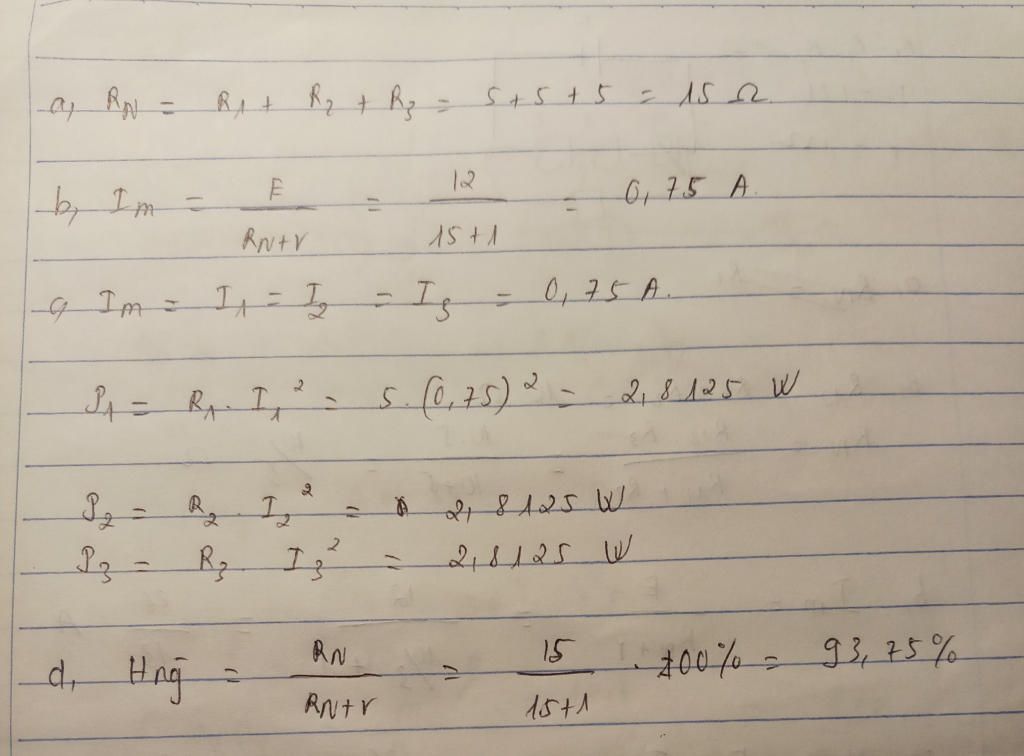 a, R_N = R_1 + R_2 + R_3 = 5 + 5 + 5 = 15 Ω
b, I_m = E / (R_N + r) = 12 / (15 + 1) = 0,75 A.
c, I_m = I_1 = I_2 = I_3 = 0,75 A.
P_1 = R_1 . I_1² = 5 . (0,75)² = 2,8125 W
P_2 = R_2 . I_2² = 2,8125 W
P_3 = R_3 . I_3² = 2,8125 W
d, Hng = R_N / (R_N + r) = 15 / (15 + 1) . 100% = 93,75%